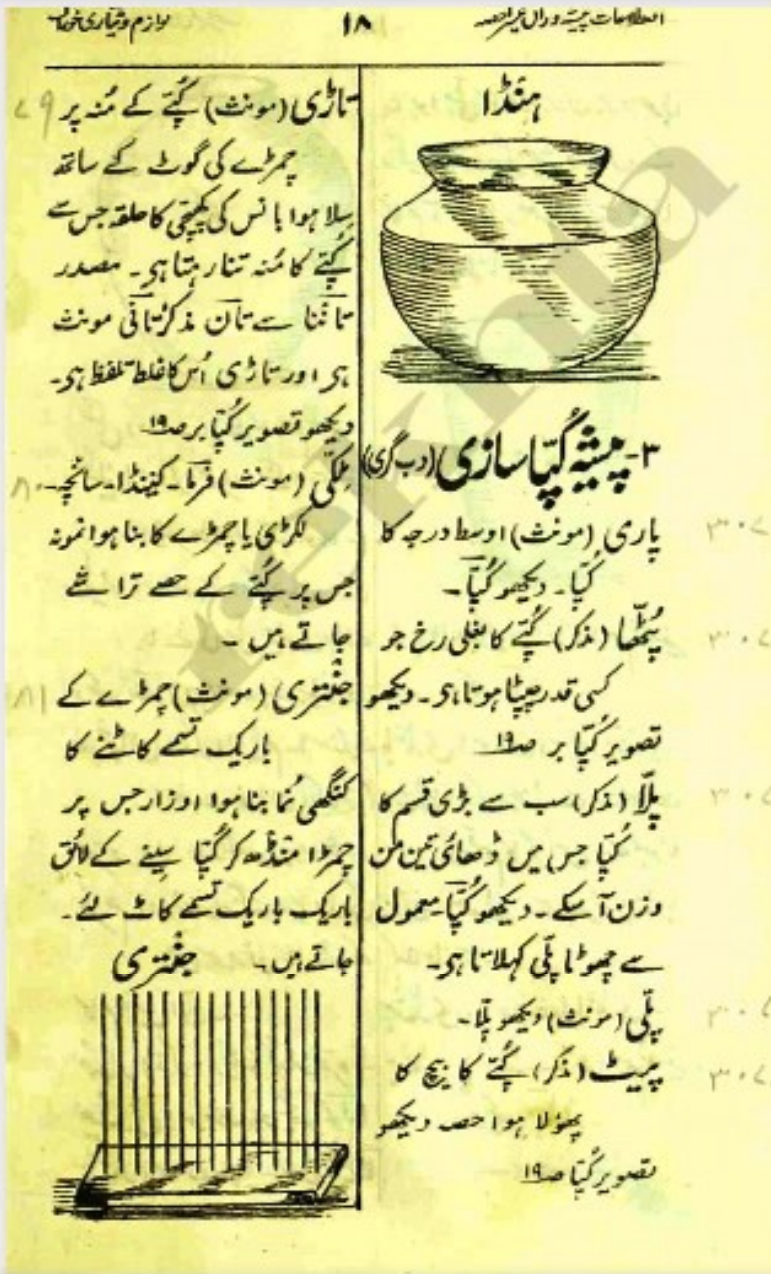 اصطلاحات پیشہ وراں
۱۸
لوازم و تیاری خوراک
ہنڈا
۳- پیشۂ کُپّا سازی (دب گری)
پاری (مونث) اوسط درجہ کا
کُپّا۔ دیکھو کُپّا۔
پُٹّھا (مذکر) کُپّے کا بغلی رخ جو
کسی قدر چپٹا ہوتا ہو۔ دیکھو
تصویر کُپّا بر صـ۱۹
پلّا (مذکر) سب سے بڑی قسم کا
کُپّا جس میں ڈھائی تین من
وزن آ سکے۔ دیکھو کُپّا۔ معمول
سے چھوٹا پلّی کہلاتا ہو۔
پلّی (مونث) دیکھو پلّا۔
پیٹ (مذکر) کُپّے کا بیچ کا
پھولا ہوا حصہ دیکھو
تصویر کُپّا صـ۱۹
تاڑی (مونث) کُپّے کے مُنہ پر
چمڑے کی گوٹ کے ساتھ
سِلا ہوا بانس کی کھپچی کا حلقہ جس سے
کُپّے کا مُنہ تنا رہتا ہو۔ مصدر
تاننا سے تان مذکر تانی مونث
ہو اور تاڑی اُس کا غلط تلفظ ہو۔
دیکھو تصویر کُپّا بر صـ۱۹
(مونث) فرما۔ کینڈا۔ سانچہ۔
لکڑی یا چمڑے کا بنا ہوا نمونہ
جس پر کُپّے کے حصے تراشے
جاتے ہیں۔
جنتری (مونث) چمڑے کے
باریک تسمے کاٹنے کا
کنگھی نُما بنا ہوا اوزار جس پر
چمڑا منڈھ کر کُپّا سینے کے لائق
باریک باریک تسمے کاٹ لئے۔
جاتے ہیں۔ جنتری